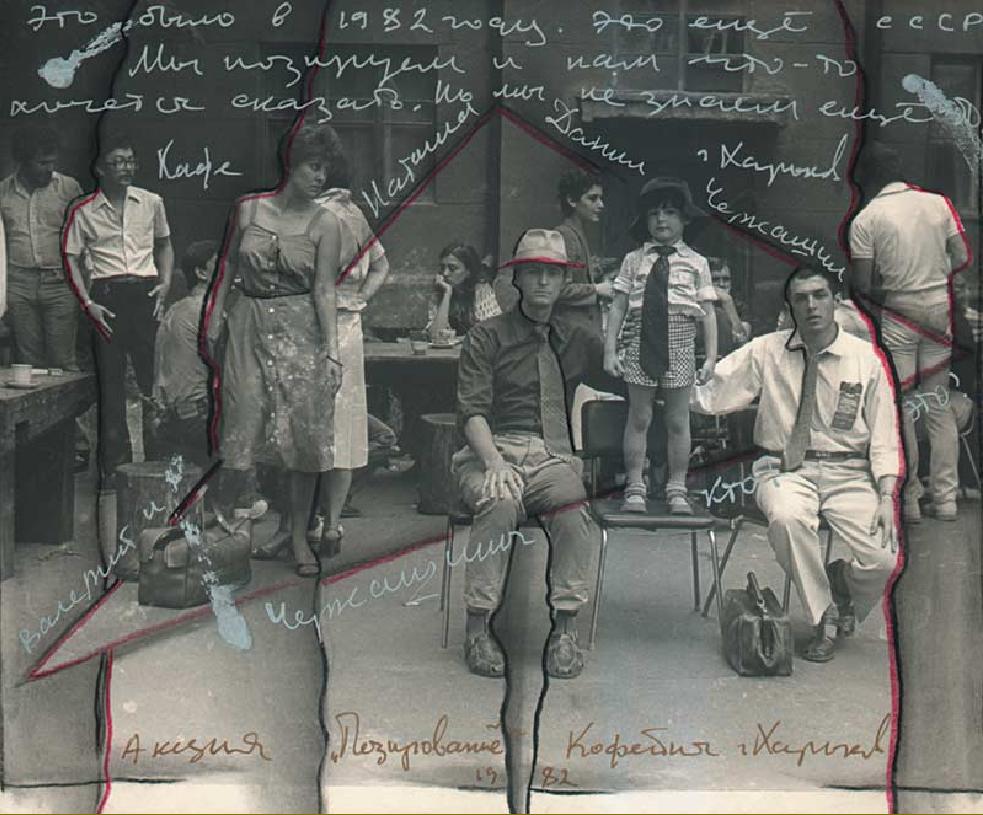 Это было в 1982 году. Это ещё СССР
Мы позируем и нам что-то
хочется сказать. Но мы не знаем ещё
Кафе
Наташа
Данил
г Харьков
Черкашин
Валерий и
Черкашины
кто
это
Акция „Позирование" Кофейня г Харьков
19 82